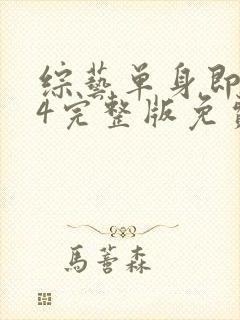 綜藝單身即
4完整版免費
馬蕾森